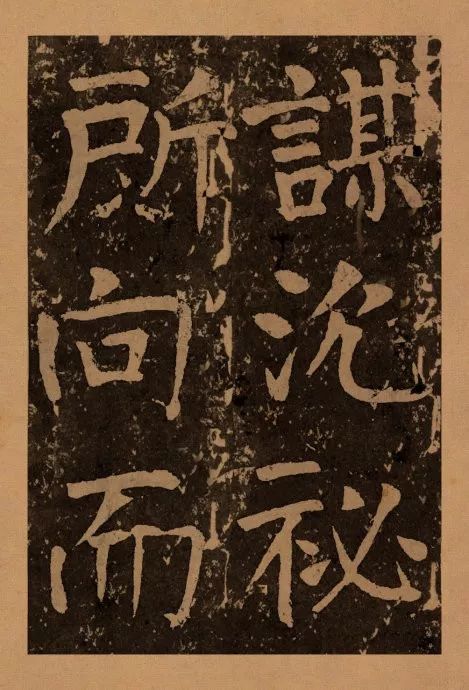 謀沉祕
所向而